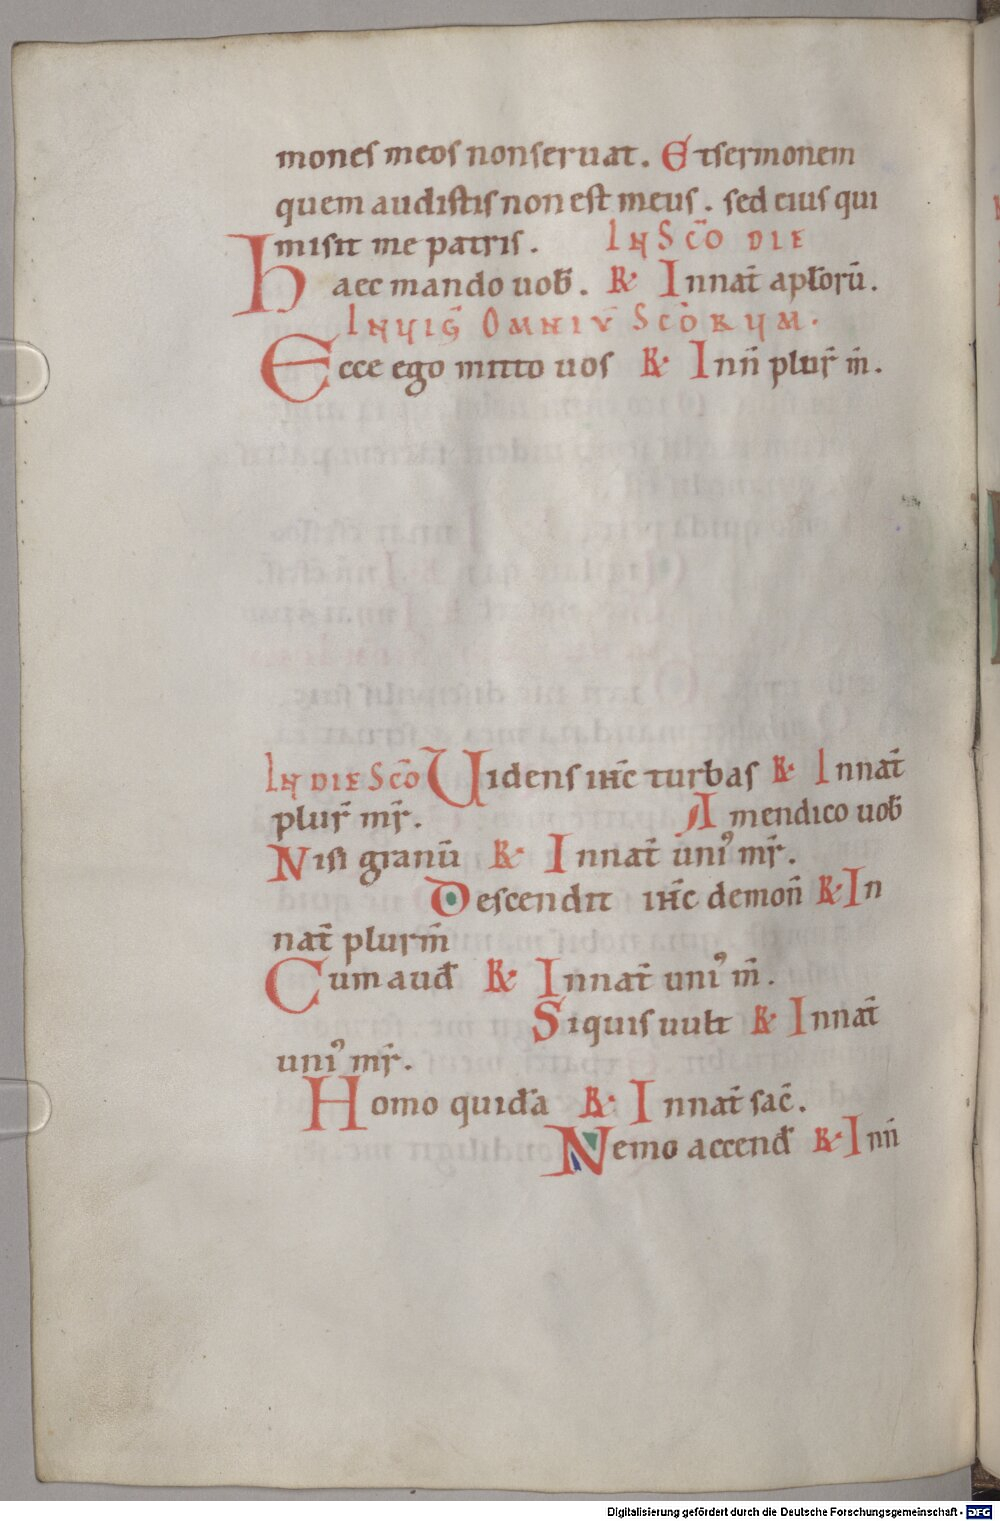 mones meos non seruat. Et sermonem
quem audistis non est meus. sed eius qui
misit me patris. IN SC̄O DIE
Haec mando uob̄. R̷ In nat̄ aplōrū.
IN UIḠ OMNIŪ SC̄ORUM.
Ecce ego mitto uos R̷ In n̄ plur̄ m̄.
IN DIE SC̄O Uidens ih̄c turbas R̷ In nat̄
plur̄ mr̄. Amen dico uob̄
Nisi granū R̷ In nat̄ uni᾽ mr̄.
Descendit ih̄c de mon̄ R̷ In
nat̄ plur m̄
Cum aud̄ R̷ In nat̄ uni᾽ m̄.
Siquis uult R̷ In nat̄
uni᾽ mr̄.
Homo quidā R̷ In nat̄ sac̄.
Nemo accend̄ R̷ In n̄
Digitalisierung gefördert durch die Deutsche Forschungsgemeinschaft - DFG